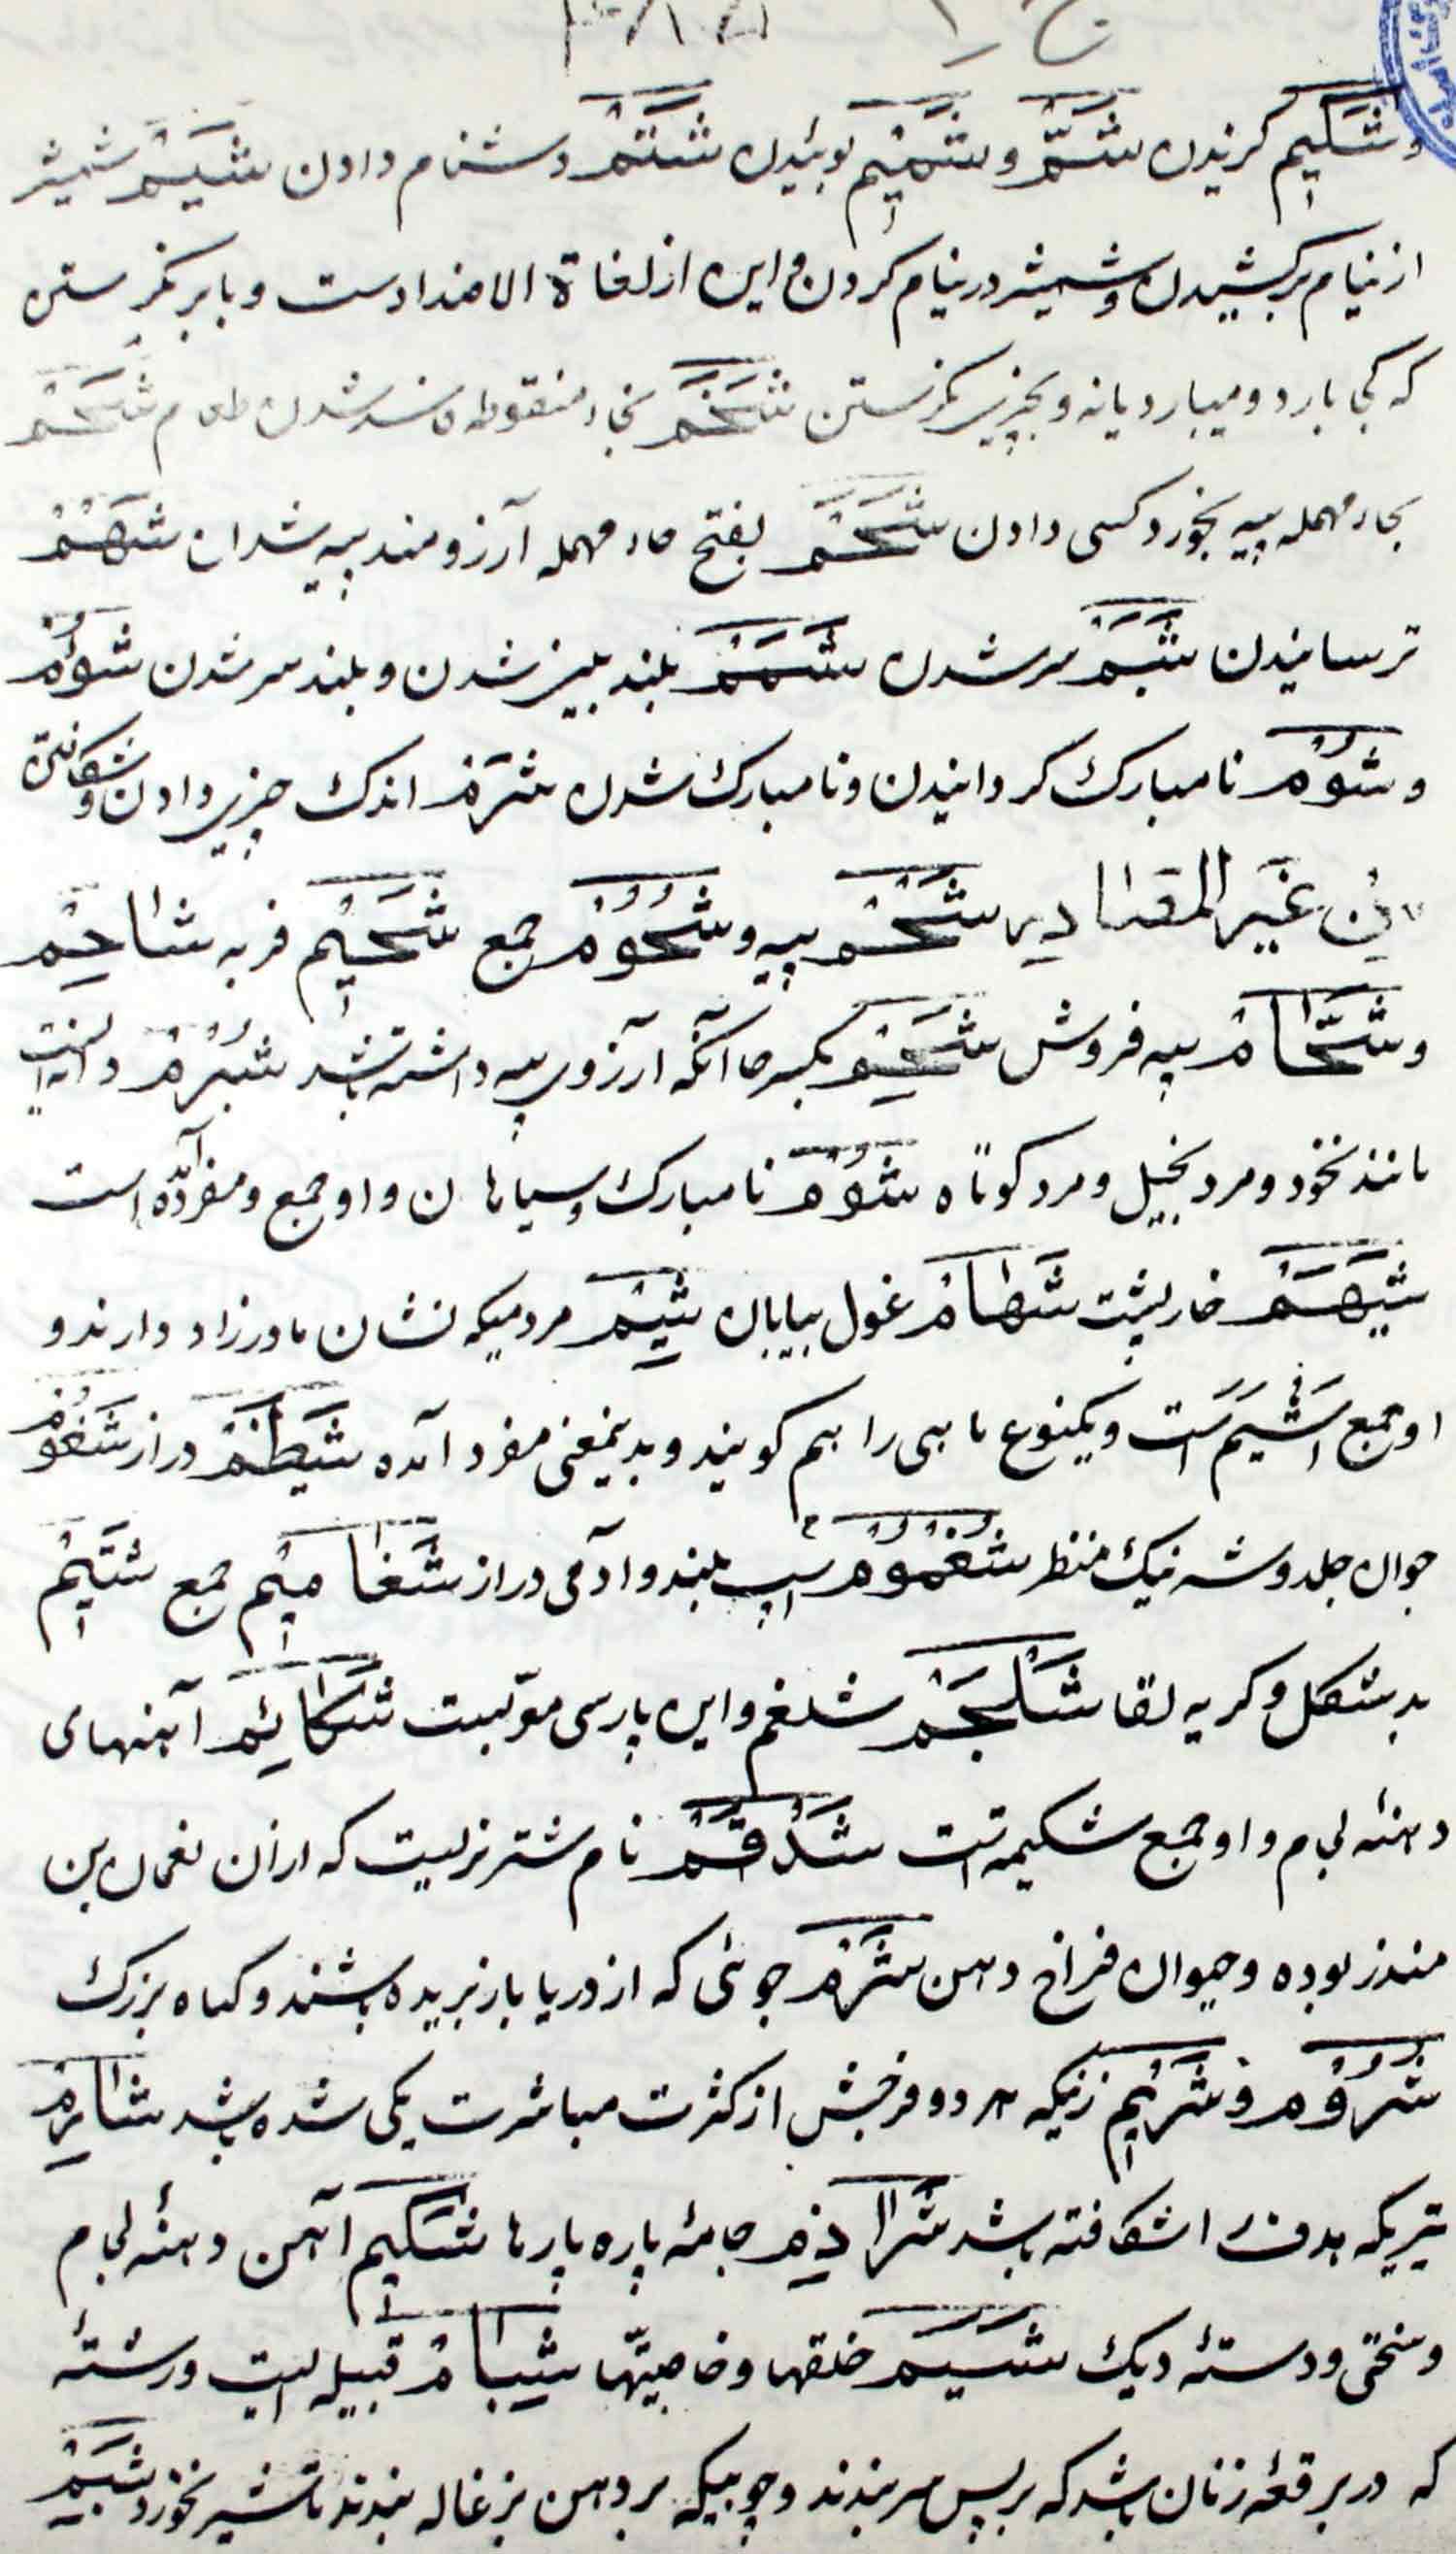 و شَکِیم گزیدن شَمّ و شَمِیم بوئیدن شَتْمْ دشنام دادن شَیْمْ شمشیر
از نیام برکشیدن و شمشیر در نیام کردن و این از لغاة الاضدادست و بابر نگرستن
که کی بارد و میبارد یا نه و بچیزی نگرستن شَخَمْ بخاء منقوطه فاسد شدن طعام شَحْمْ
بحاء مهمله پیه بخورد کسی دادن شَحَمْ بفتح حاء مهمله آرزومند پیه شدان شَهْمْ
ترسانیدن شَبَمْ سر شدن شَمَمْ بلند بینی شدن و بلند سر شدن شُؤْمْ
و شُوْمْ نامبارک گردانیدن و نامبارک شدن شَرْمْ اندک چیزی دادن و شکافتن
مِنْ غَیْرِ المَصَادِرِ شَحْمْ پیه و شُحُوْمْ جمع شَحِیْم فربه شَاحِمْ
و شَحَّامْ پیه فروش شَحِمْ بکسر حا آنکه آرزوی پیه داشته باشد شُبْرُمْ دانه ایست
مانند نخود و مرد بخیل و مرد کوتاه شُوْمْ نامبارک و سیاهان و او جمع و مفرد آمده است
شَیْهَمْ خارپشت شَهَامْ غول بیابان شِیْمْ مردمیکه نشان مادرزاد دارند و
او جمع اَشْیَم است و یکنوع ماهی را هم گویند و بدینمعنی مفرد آمده شَیْظَمْ دراز شُغْمُوْمْ
جوان جلد و شتر نیک منظر شُغْمُوْمْ اسپ بلند و آدمی دراز شَغَامِیْم جمع شَتِیْم
بد شکل و کریه لقا شَلْجَمْ شلغم و این پارسی معرّبست شَکَائِمْ آهنهای
دهنه لجام و او جمع شکیمه است شَدْقَمْ نام شتر نریست که ازان نعمان بن
منذر بوده و حیوان فراخ دهن شَرْمْ جوئی که از دریا باز بریده باشند و گیاه بزرگ
شَرُوْمْ و شَرِیْم زنیکه هر دو فرجش از کثرت مباشرت یکی شده باشد شَارِمْ
تیریکه هدف را شکافته باشد شَرَاذِمْ جامهٔ پاره پارها شَکِیْم آهن دهنه لجام
و سختی و دستهٔ دیگ شِیَمْ خلقها و خاصیتها شِبَامْ قبیله ایست و رشتهٔ
که در برقعهٔ زنان باشد که بر پس سر بندند و چوبیکه بر دهن بزغاله بندند تا شیر نخورد شَبِمْ